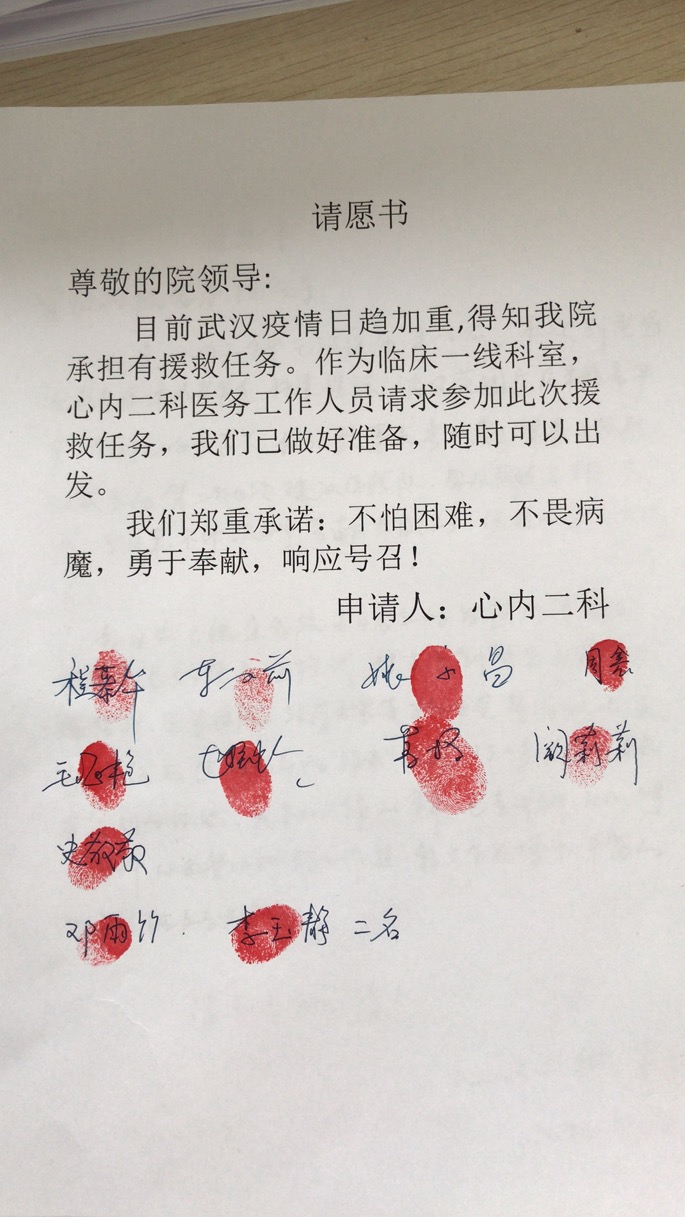 请愿书
尊敬的院领导:
目前武汉疫情日趋加重,得知我院
承担有援救任务。作为临床一线科室，
心内二科医务工作人员请求参加此次援
救任务，我们已做好准备，随时可以出
发。
我们郑重承诺：不怕困难，不畏病
魔，勇于奉献，响应号召！
申请人：心内二科
周鑫
阚莉莉
邓雨竹. 李玉静 二名